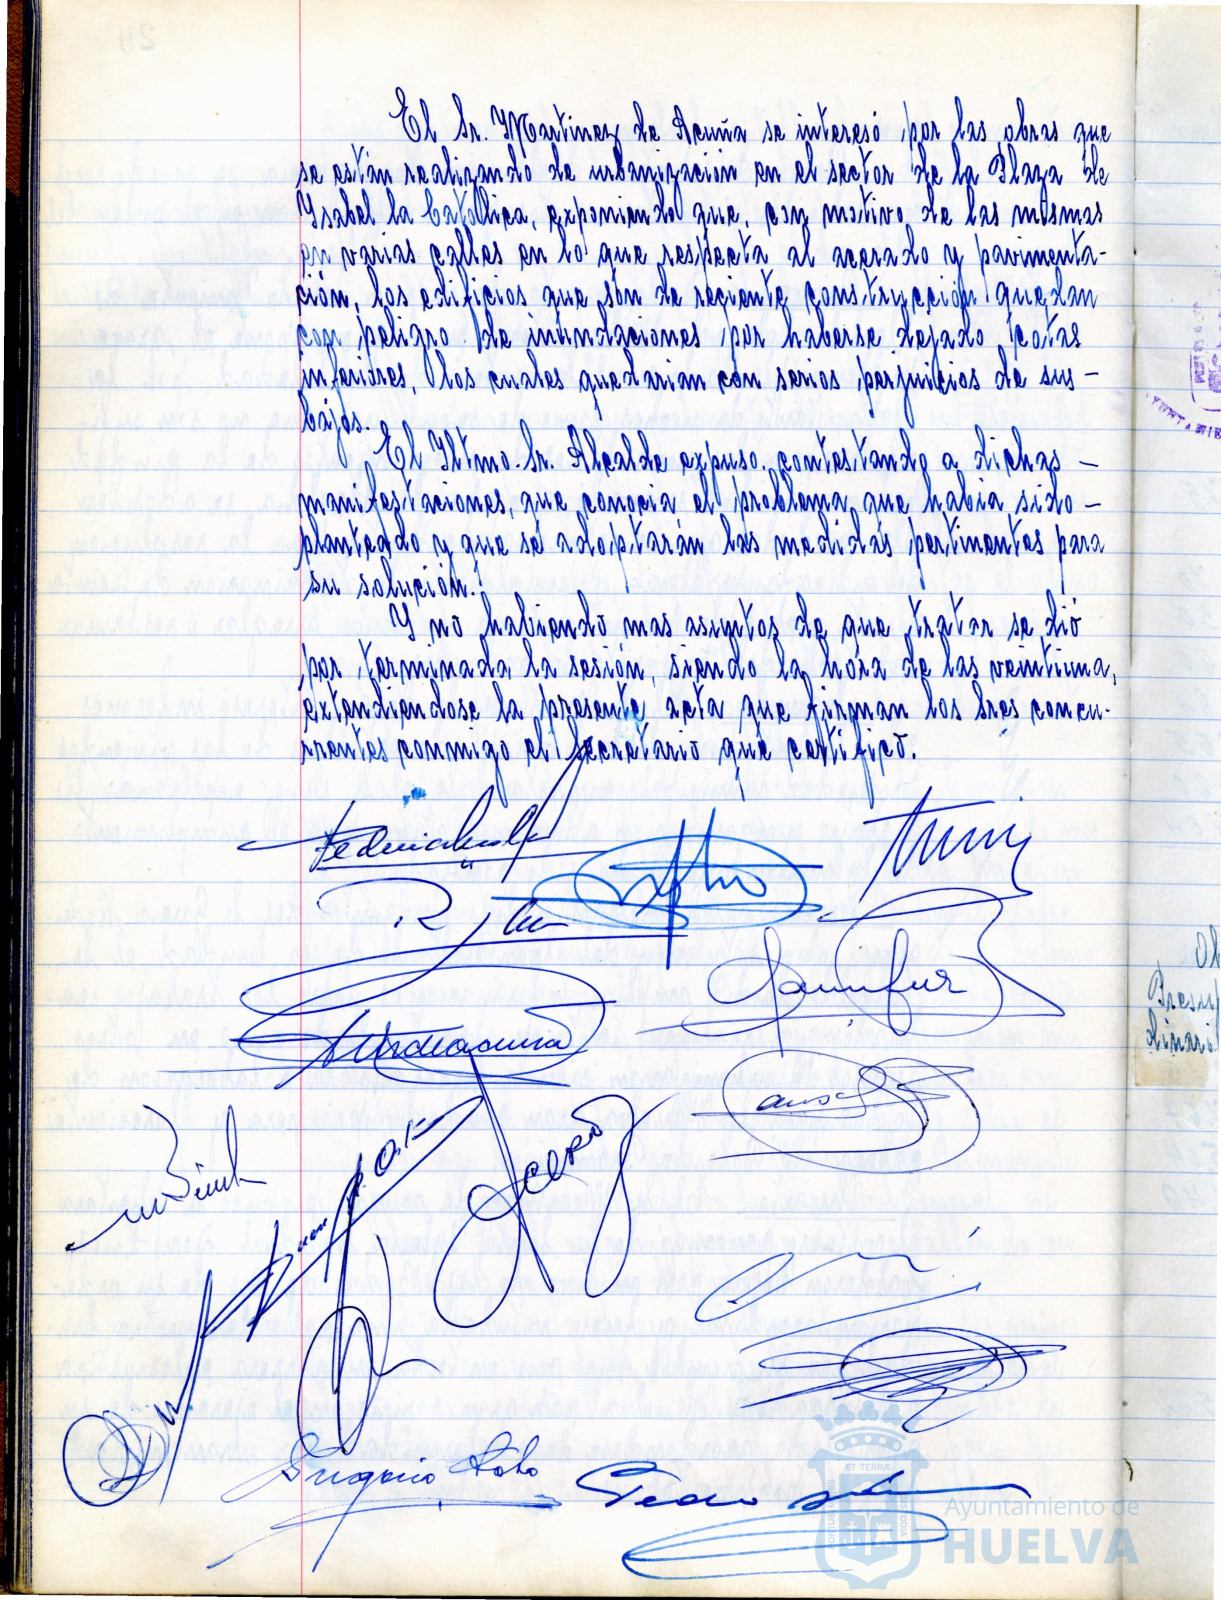 El Sr. Martinez de Acuña se interesó por las obras que
se están realizando de urbanización en el sector de la Plaza de
Ysabel la Católica, exponiendo que, con motivo de las mismas
en varias calles en lo que respecta al acerado y pavimenta-
ción, los edificios que son de reciente construcción quedan
con peligro de inundaciones por haberse dejado cotas
inferiores, los cuales quedarían con serios perjuicios de sus-
bajos.
El Iltmo. Sr. Alcalde expuso, contestando a dichas -
manifestaciones, que conocia el problema que habia sido -
planteado y que se adoptarán las medidas pertinentes para
su solución.
Y no habiendo mas asuntos de que tratar se dió
por terminada la sesión, siendo la hora de las veintiuna,
extendiendose la presente acta que firman los Sres concu-
rrentes conmigo el Secretario que certifico.
Pedro
Ayuntamiento de
HUELVA